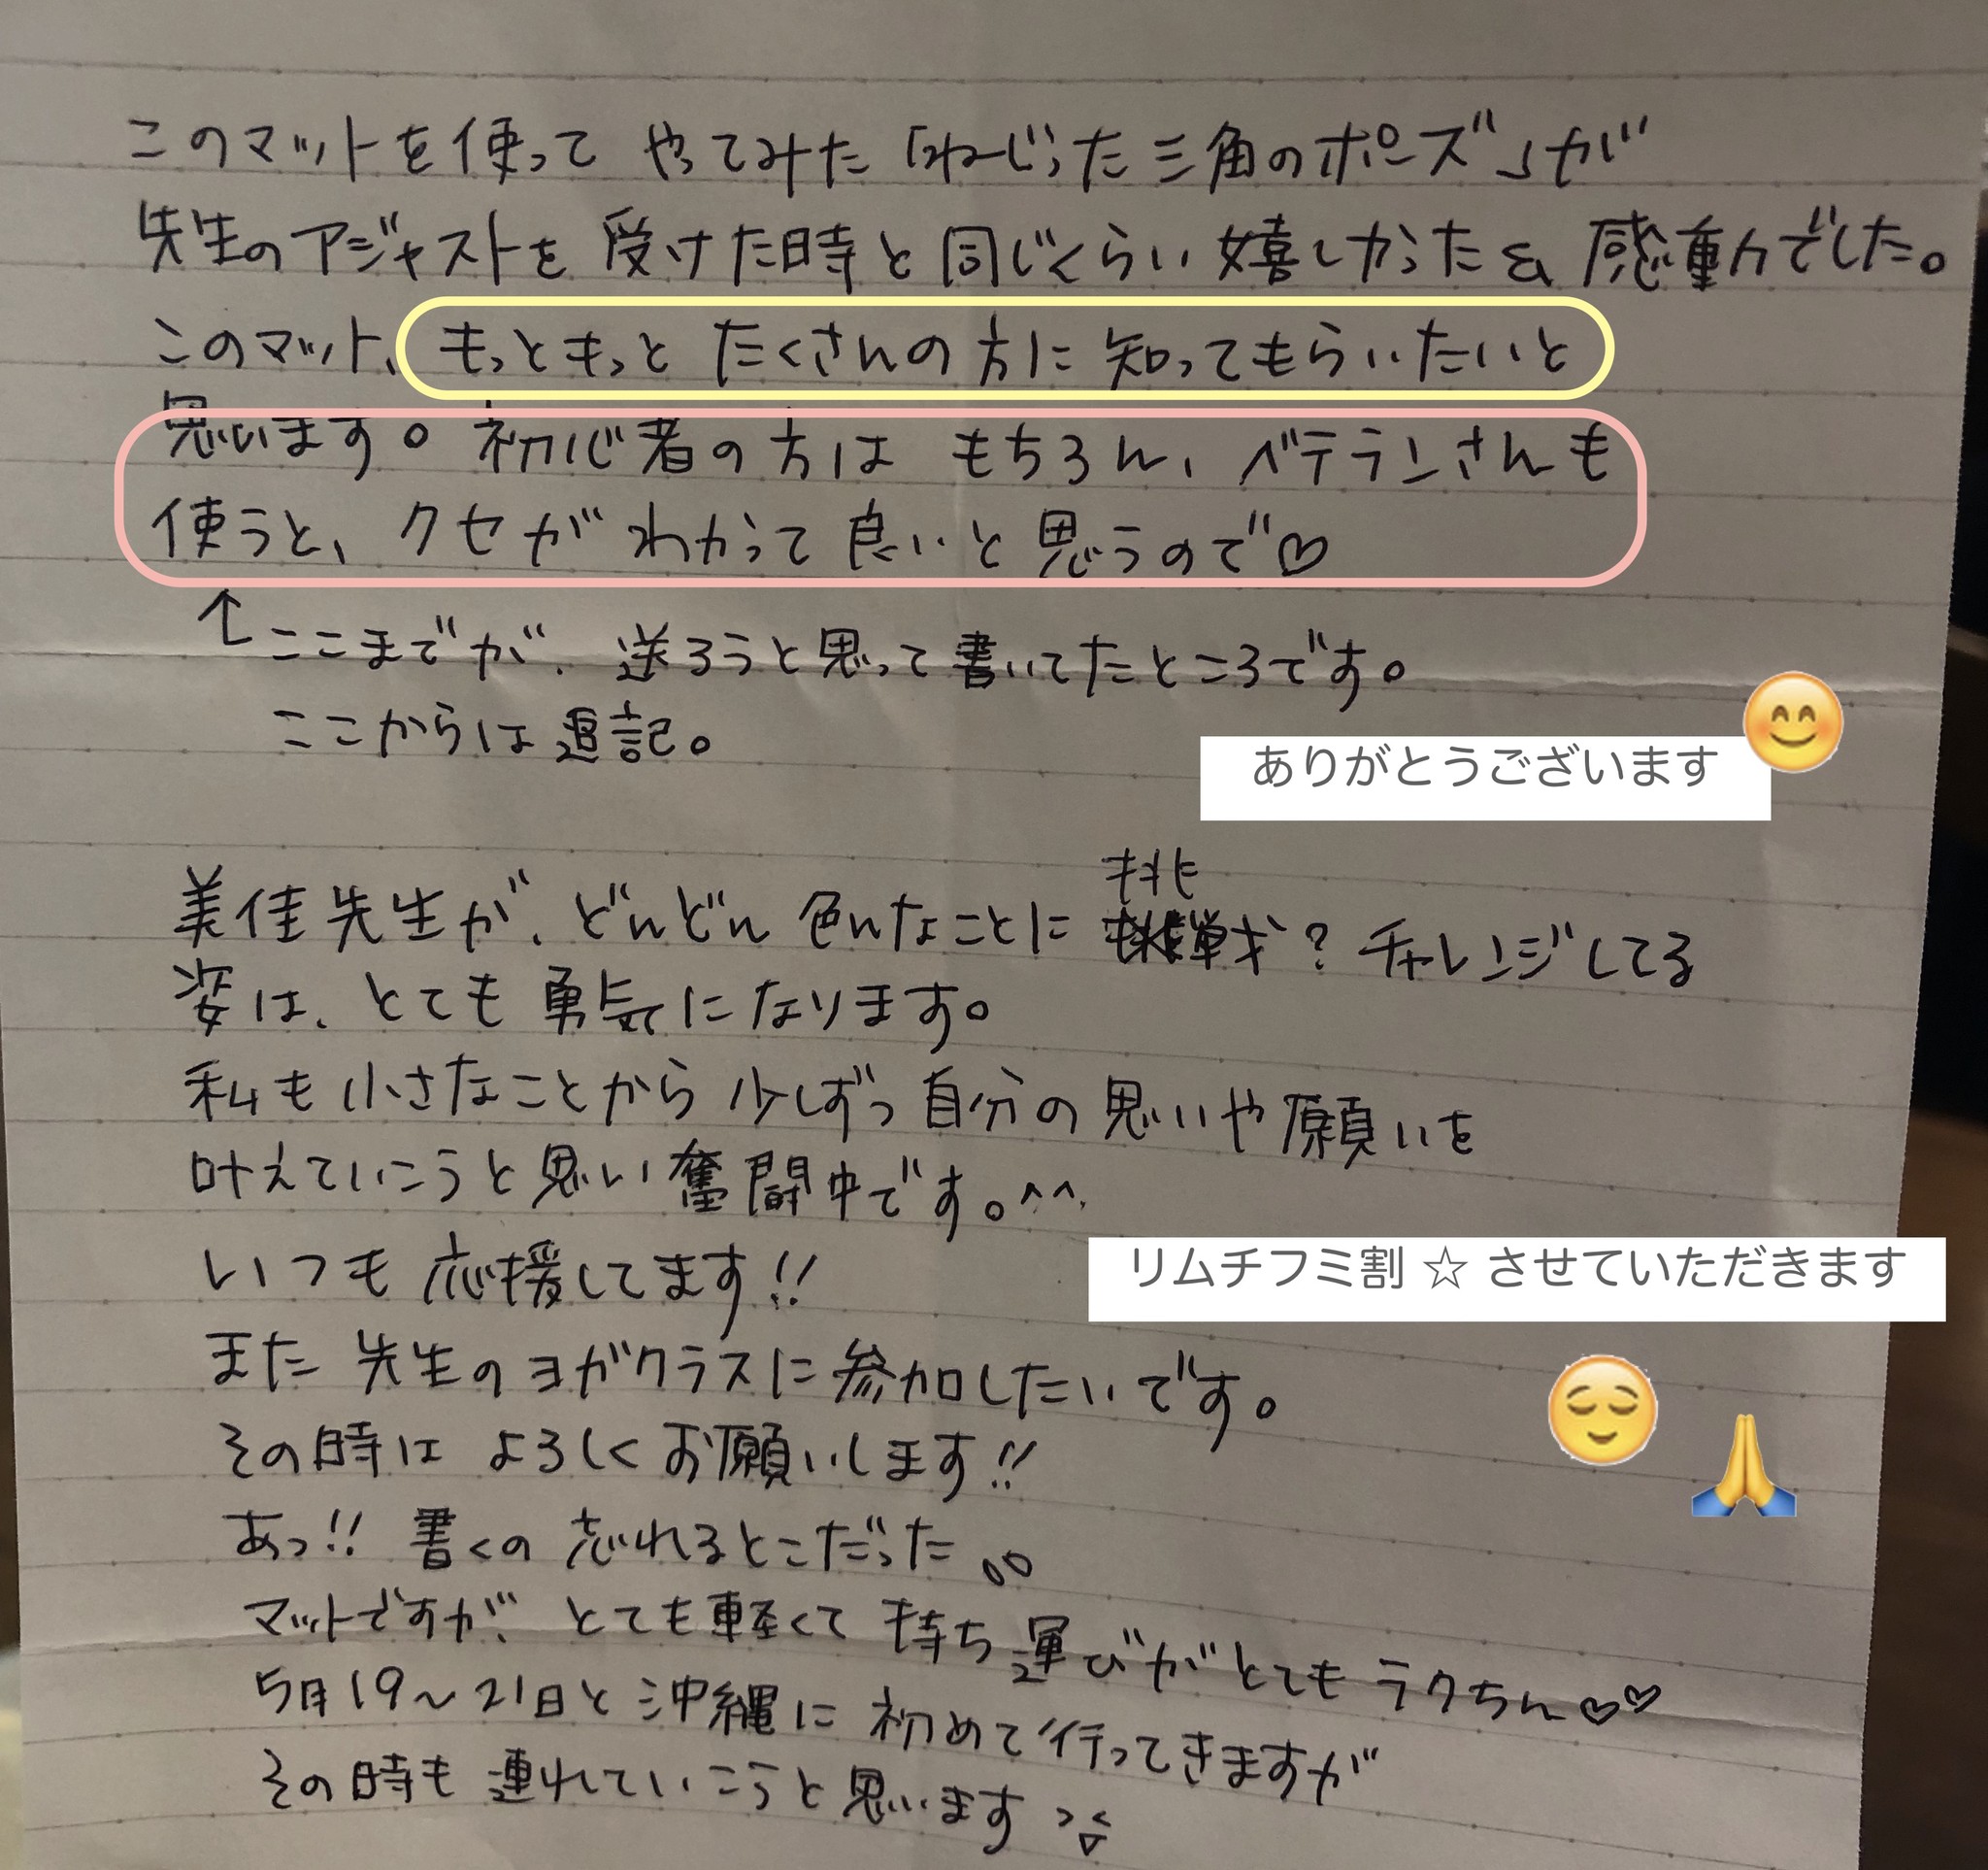 このマットを使って やってみた「ねじった三角のポーズ」が
先生のアジャストを受けた時と同じくらい嬉しかった&感動でした。
このマット、もっともっと たくさんの方に 知ってもらいたいと
思います。初心者の方は もちろん、ベテランさんも
使うと、クセがわかって良いと思うので♡
↑ここまでが、送ろうと思って書いてたところです。
ここからは追記。
ありがとうございます
美佳先生が、どんどん色んなことに挑戦?チャレンジしてる
姿は、とても勇気になります。
私も小さなことから少しずつ自分の思いや願いを
叶えていこうと思い奮闘中です。^^
いつも応援してます!!
リムチフミ割 ☆ させていただきます
また先生のヨガクラスに参加したいです。
その時は よろしくお願いします!!
あっ!! 書くの忘れるとこだった
マットですが、とても軽くて持ち運びがとてもラクちん♡♡
5月19〜21日と沖縄に初めて行ってきますが
その時も連れていこうと思います